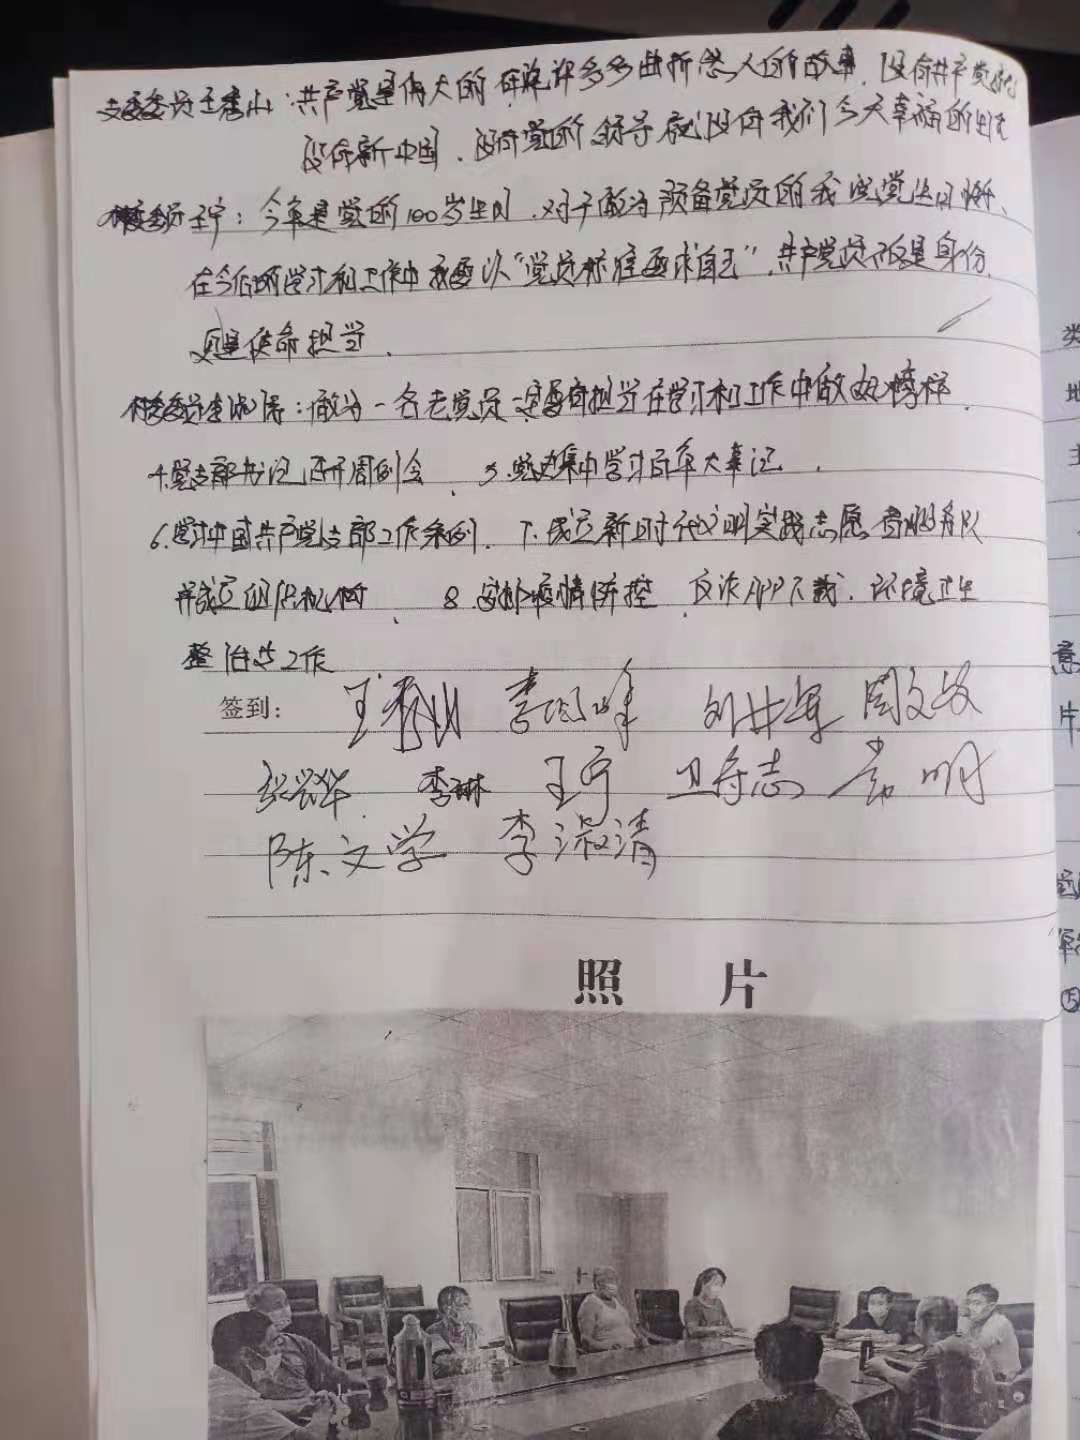 支委委员王秀山：共产党是伟大的 许多多曲折感人的故事．没有共产党就
没有新中国．没有党的领导就没有我们今天幸福的生活
王宁：今年是党的100岁生日．对于做为预备党员的我 党生日
在今后的学习和工作中我要以“党员标准要求自己”．共产党员不仅是身份
更是使命担当．
委员李淑清：做为一名老党员一定要有担当在学习和工作中做好榜样．
4.党支部书记召开周例会． 5.党员集中学习百年大事记．
6.学习中国共产党支部工作条例． 7.成立新时代文明实践志愿者服务队
并成立组织机构． 8.安排疫情防控．反诈APP下载．环境卫生
整治等工作
签到： 王秀山 李 峰 刘 军 周文
张 华 李琳 王宁 卫 志 袁明
陈文学 李淑清
照 片
类
地
主
意
片
⑤